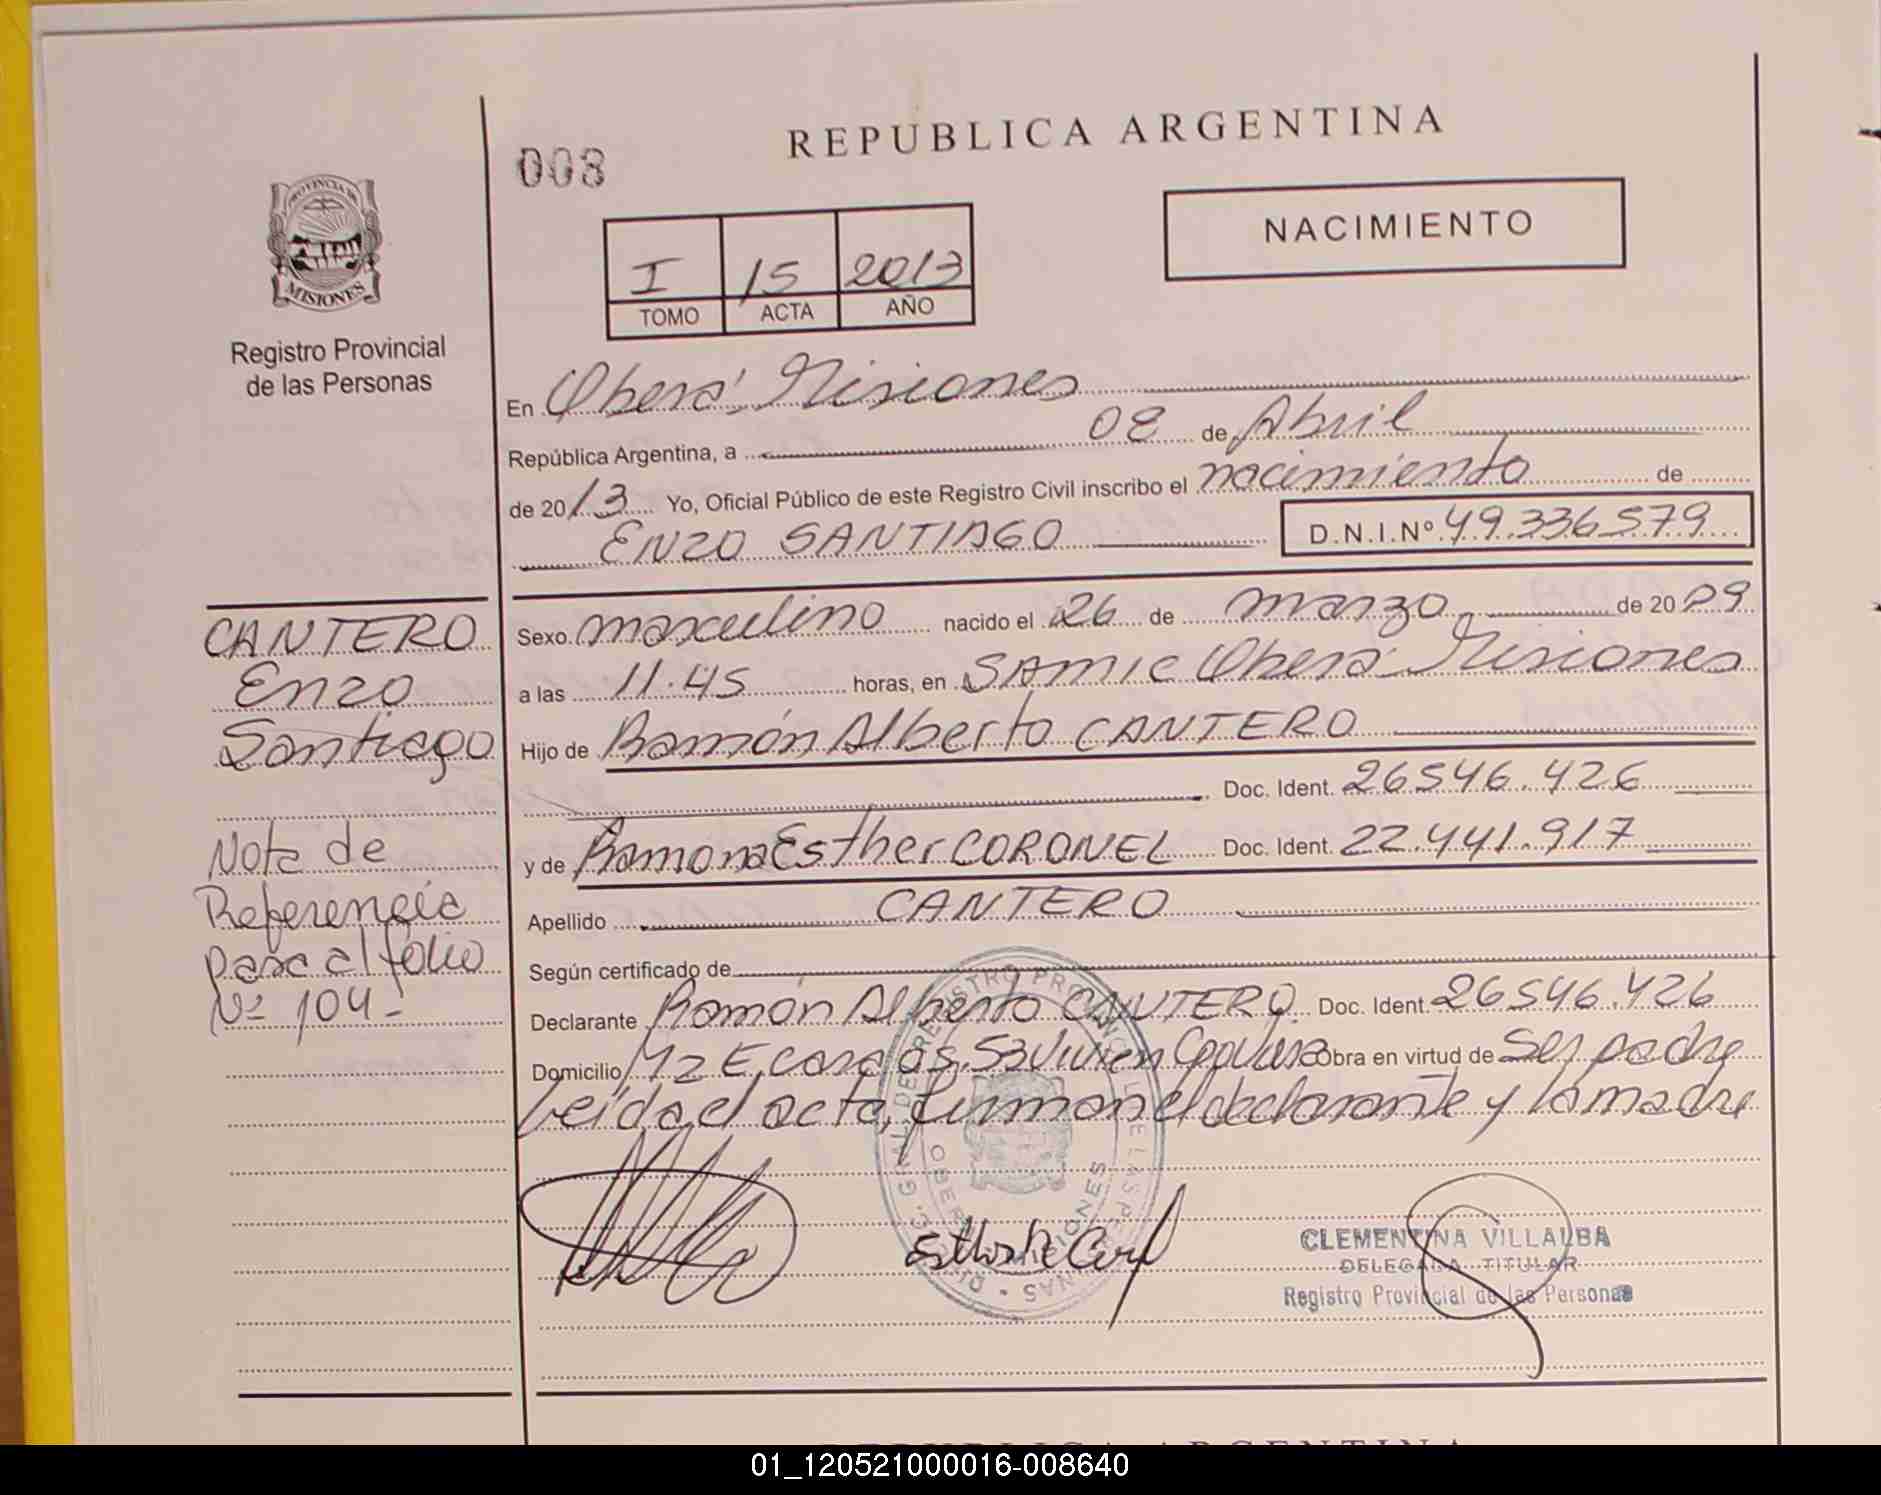 REPUBLICA ARGENTINA
008
NACIMIENTO
I 15 2013
TOMO ACTA AÑO
PROVINCIA DE
MISIONES
Registro Provincial
de las Personas
En Oberá, Misiones
República Argentina, a 08 de Abril
de 2013 Yo, Oficial Público de este Registro Civil inscribo el nacimiento de
ENZO SANTIAGO D.N.I.Nº 49.336.579
CANTERO
Enzo
Santiago
Nota de
Referencia
pasa al folio
Nº 104-
Sexo masculino nacido el 26 de marzo de 2009
a las 11.45 horas, en SAMIC Oberá Misiones
Hijo de Ramón Alberto CANTERO
Doc. Ident. 26546.426
y de Ramona Esther CORONEL Doc. Ident. 22.441.917
Apellido CANTERO
Según certificado de
Declarante Ramón Alberto CANTERO. Doc. Ident. 26546.426
Domicilio Mz E casa 53 Obra en virtud de Ser padre
Leída el acta, firman el declarante y la madre
CLEMENTINA VILLALBA
DELEGADA TITULAR
Registro Provincial de las Personas
REPUBLICA ARGENTINA
01_120521000016-008640